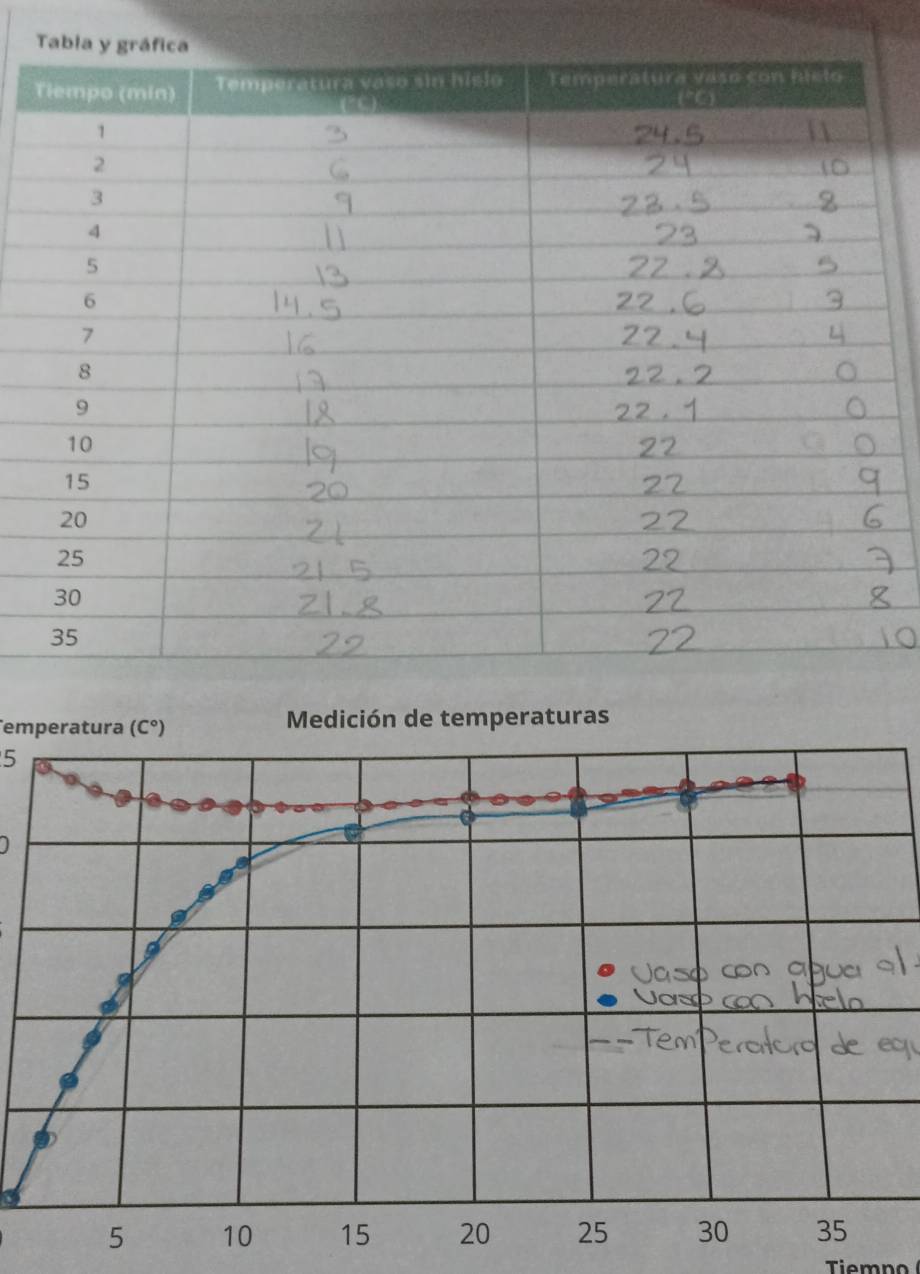 Tabla y gráfica
Tiempo (min) Temperatura vaso sin hielo (°C) Temperatura vaso con hielo (°C)
1 3 24.5 11
2 6 24 10
3 9 23.5 8
4 11 23 7
5 13 22.8 5
6 14.5 22.6 3
7 16 22.4 4
8 17 22.2 0
9 18 22.1 0
10 19 22 0
15 20 22 9
20 21 22 6
25 21.5 22 7
30 21.8 22 8
35 22 22 10
Temperatura (C°) Medición de temperaturas
5
0
Vaso con agua al
Vaso con hielo
--Temperatura de
5 10 15 20 25 30 35
Tiempo